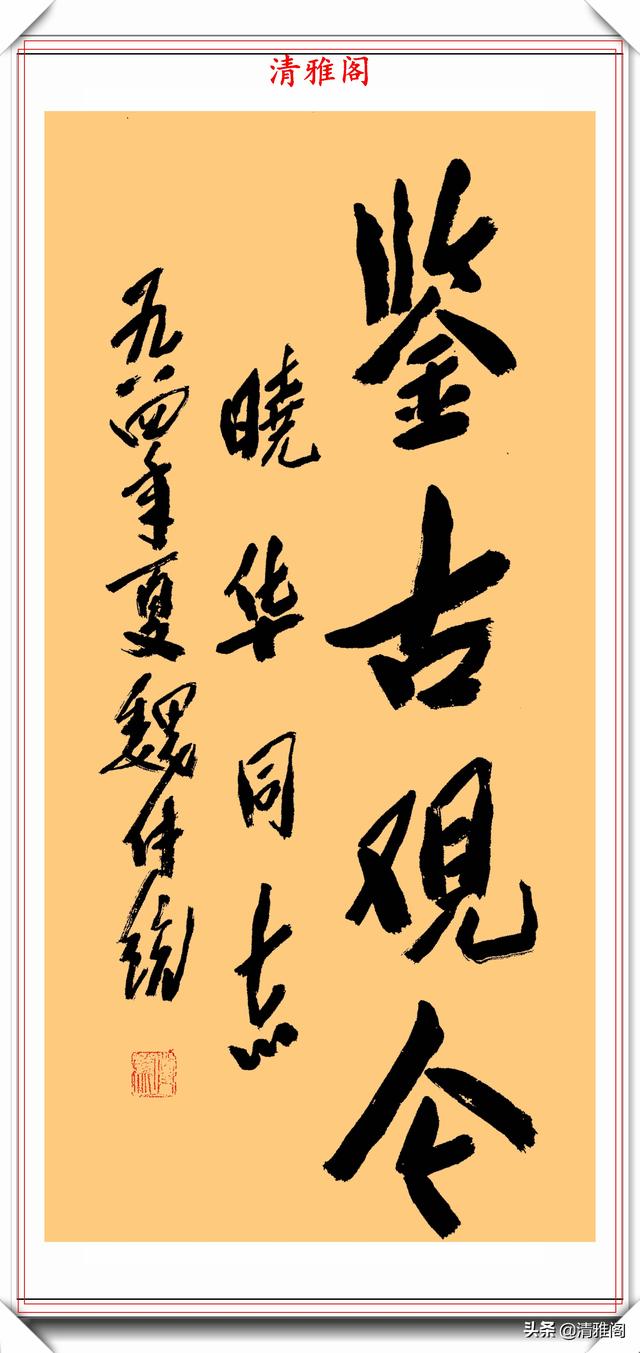 清雅阁
鉴古观今
曉华同志
一九八四年夏魏传统
头条 @清雅阁